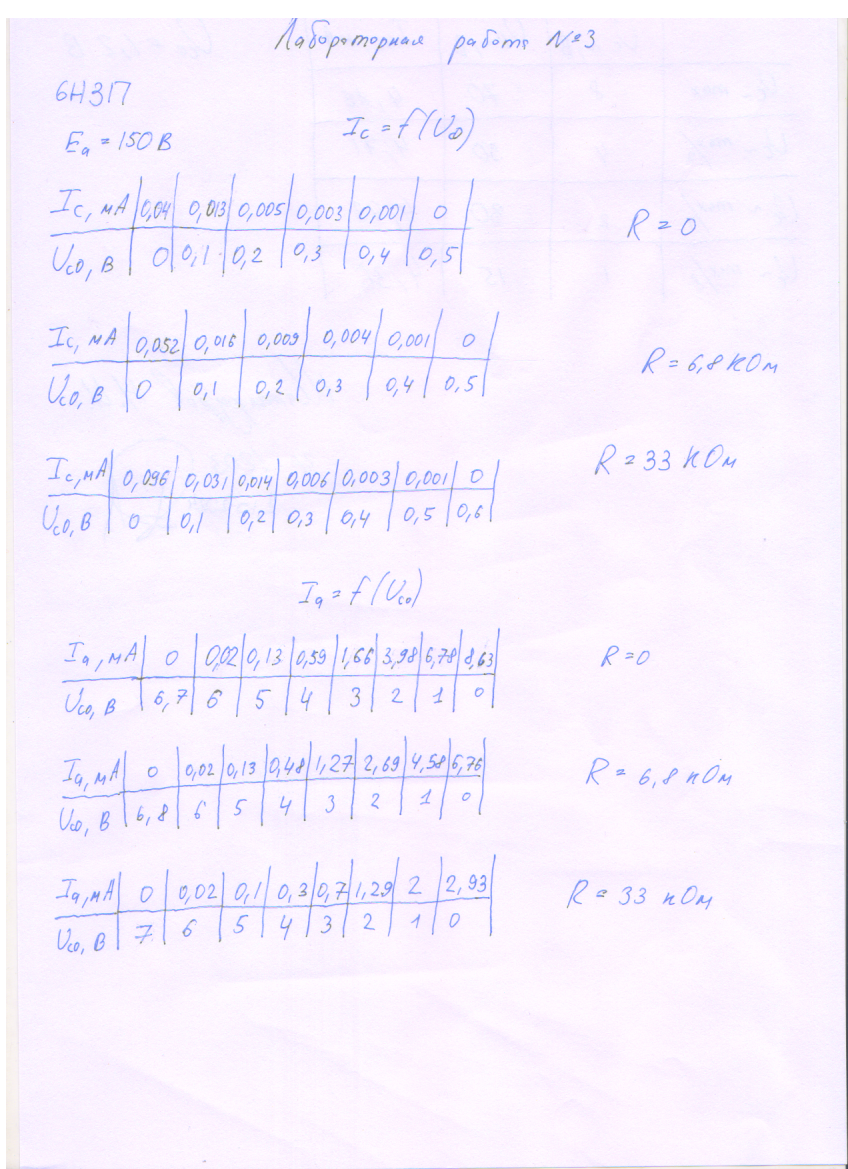 Лабораторная работа №3
6Н3П
Eа = 150 В
Iс = f(Uс0)
Iс, мА 0,04 0,013 0,005 0,003 0,001 0
R = 0
Uс0, В 0 0,1 0,2 0,3 0,4 0,5
Iс, мА 0,052 0,016 0,009 0,004 0,001 0
R = 6,8 КОм
Uс0, В 0 0,1 0,2 0,3 0,4 0,5
Iс, мА 0,096 0,031 0,014 0,006 0,003 0,001 0
R = 33 КОм
Uс0, В 0 0,1 0,2 0,3 0,4 0,5 0,6
Iа = f(Uс0)
Iа, мА 0 0,02 0,13 0,59 1,66 3,98 6,78 8,63
R = 0
Uс0, В 6,7 6 5 4 3 2 1 0
Iа, мА 0 0,02 0,13 0,48 1,27 2,69 4,58 6,76
R = 6,8 кОм
Uс0, В 6,8 6 5 4 3 2 1 0
Iа, мА 0 0,02 0,1 0,3 0,7 1,29 2 2,93
R = 33 кОм
Uс0, В 7 6 5 4 3 2 1 0